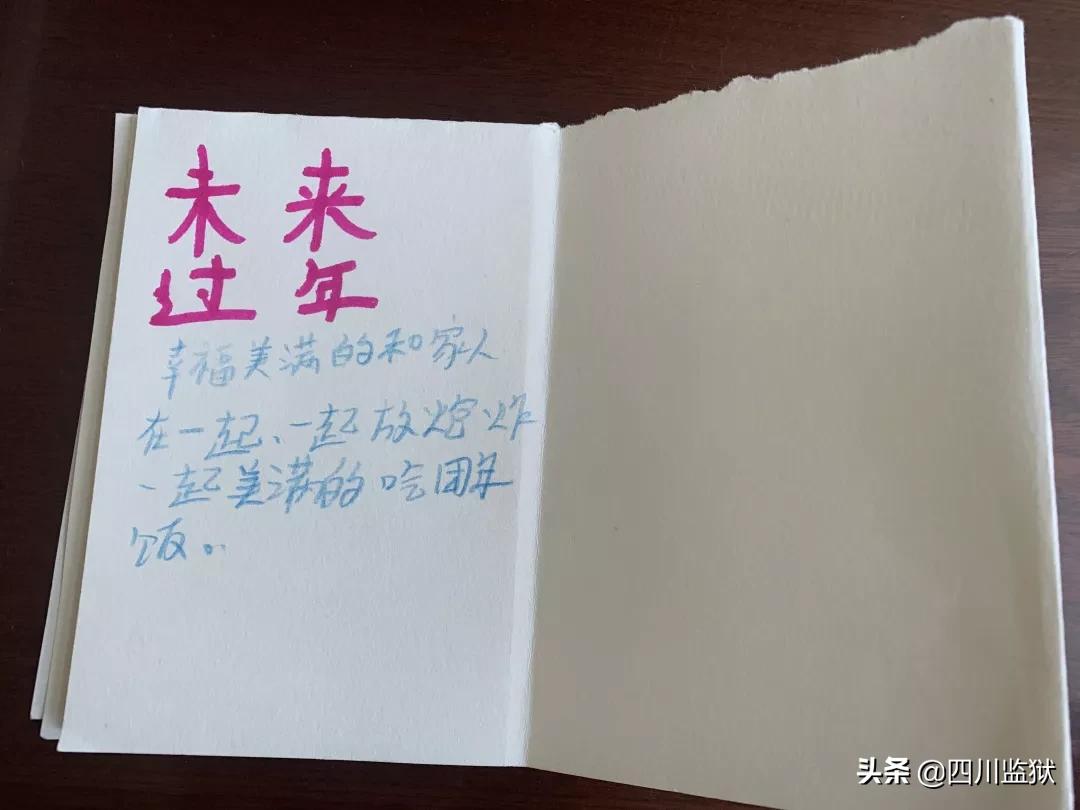 未来
过年
幸福美满的和家人
在一起、一起放炮炸
、一起美满的吃团年
饭。
头条 @四川监狱